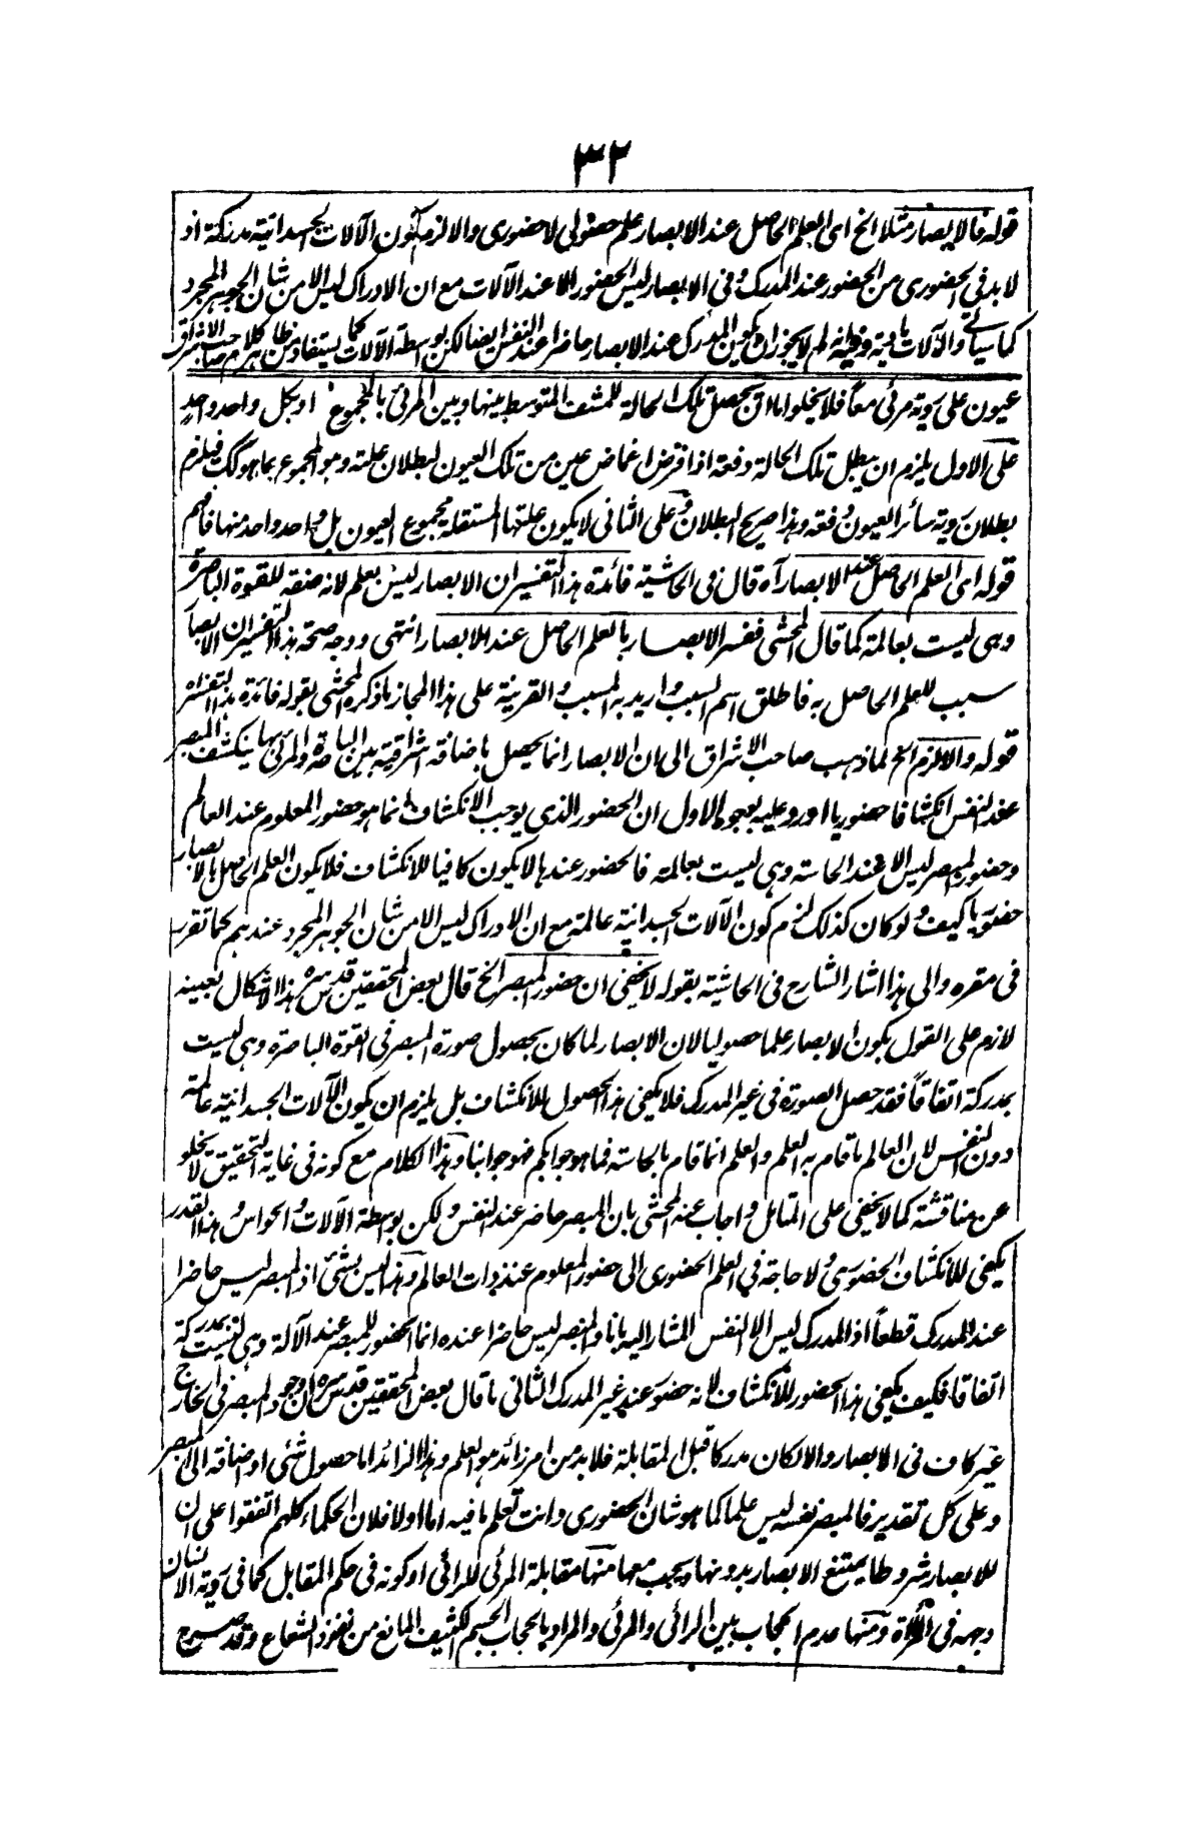 ٣٢
قوله فالابصار مثلا الخ اى العلم الحاصل عند الابصار علم حصولى لا حضورى والا لزم كون الآلات الجسدانية مدركة اذ
لا بد فى الحضورى من الحضور عند المدرك وفى الابصار ليس الحضور الا عند الآلات مع ان الادراك ليس الا من شان الجوهر المجرد
كما سياتى والآلات مادية وفيه انه لم لا يجوز ان يكون المدرك عند الابصار حاضرا عند النفس ايضا لكن بواسطة الآلات كما يستفاد من ظاهر كلام صاحب الاشراق
عيون على روية مرئى معاً فلا يخلوا ما ان يحصل تلك الحالة للمشف المتوسط بينها وبين المرئى بالمجموع او بكل واحد واحد
على الاول يلزم ان يبطل تلك الحالة دفعة اذا فرض اغماض عين من تلك العيون لبطلان علته وهو المجموع بما هو كك فيلزم
بطلان روية سائر العيون دفعة وهذا صريح البطلان وعلى الثانى لا يكون علتها المستقلة مجموع العيون بل واحد واحد منها فافهم
قوله اى العلم الحاصل عند الابصار آه قال فى الحاشية فائدة هذا التفسير ان الابصار ليس بعلم لانه صفة للقوة الباصرة
وهى ليست بعالمة كما قال المحشى ففسر الابصار بالعلم الحاصل عند الابصار انتهى ووجه صحة هذا التفسير ان الابصار
سبب للعلم الحاصل به فاطلق اسم السبب واريد به المسبب والقرينة على هذا المجاز ما ذكره المحشى بقوله فائدة هذا التفسير آه
قوله والا لزم الخ لما ذهب صاحب الاشراق الى ان الابصار انما يحصل باضافة اشراقية بين الباصرة والمرئى بها ينكشف المبصر
عند النفس انكشافا حضوريا اورد عليه بوجوه الاول ان الحضور الذى يوجب الانكشاف انما هو حضور المعلوم عند العالم
وحضور المبصر ليس الا عند الحاسة وهى ليست بعالمة فالحضور عندها لا يكون كافيا للانكشاف فلا يكون العلم الحاصل بالابصار
حضوريا كيف ولو كان كذلك لزم كون الآلات الجسدانية عالمة مع ان الادراك ليس الا من شان الجوهر المجرد عندهم كما تقرر
فى مقره والى هذا اشار الشارح فى الحاشية بقوله لا يخفى ان حضور المبصر الخ قال بعض المحققين قدس سره هذا الاشكال بعينه
لازم على القول بكون الابصار علما حصوليا لان الابصار لما كان بحصول صورة المبصر فى القوة الباصرة وهى ليست
بمدركة اتفاقاً فقد حصل الصورة فى غير المدرك فلا يكفى هذا الحصول للانكشاف بل يلزم ان يكون الآلات الجسدانية عالمة
دون النفس لان العالم ما قام به العلم والعلم انما قام بالحاسة فما هو جوابكم فهو جوابنا وهذا الكلام مع كونه فى غاية التحقيق لا يخلو
عن مناقشة كما لا يخفى على المتامل واجاب عنه المحشى بان المبصر حاضر عند النفس ولكن بواسطة الآلات والحواس وهذا القدر
يكفى للانكشاف الحضورى ولا حاجة فى العلم الحضورى الى حضور المعلوم عند ذات العالم وهذا ليس بشئ اذ المبصر ليس حاضرا
عند المدرك قطعاً اذ المدرك ليس الا النفس المشار اليه بانا والمبصر ليس حاضرا عنده انما الحضور للمبصر عند الآلة وهى ليست بمدركة
اتفاقا فكيف يكفى هذا الحضور للانكشاف لانه حضور عند غير المدرك الثانى ما قال بعض المحققين قدس سره ان وجود المبصر فى الخارج
غير كاف فى الابصار والا لكان مدركا قبل المقابلة فلا بد من امر زائد هو العلم وهذا الزائد اما حصول شئى او اضافة الى المبصر
وعلى كل تقدير فالمبصر نفسه ليس علما كما هو شان الحضورى وانت تعلم ما فيه اما اولا فلان الحكماء كلهم اتفقوا على ان
للابصار شروطا يمتنع الابصار بدونها ويجب معها منها مقابلة المرئى للرائى او كونه فى حكم المقابل كما فى روية الانسان
وجهه فى المرآة ومنها عدم الحجاب بين الرائى والمرئى والمراد بالحجاب الجسم الكثيف المانع من نفوذ الشعاع وقد صرح